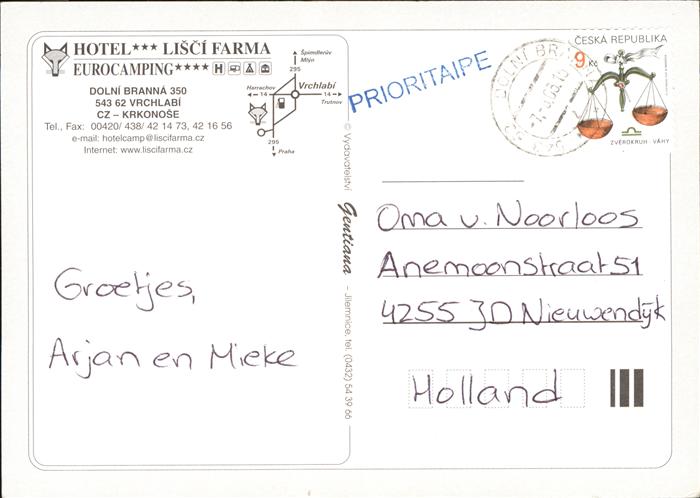 HOTEL*** LIŠČÍ FARMA
EUROCAMPING****
DOLNÍ BRANNÁ 350
543 62 VRCHLABÍ
CZ – KRKONOŠE
Tel., Fax: 00420/ 438/ 42 14 73, 42 16 56
e-mail: hotelcamp@liscifarma.cz
Internet: www.liscifarma.cz
Špindlerův
Mlýn
295
Harrachov
Vrchlabí
14
14
Trutnov
295
Praha
PRIORITAIPE
DOLNÍ BR
ČESKÁ REPUBLIKA
9 Kč
ZVĚROKRUH - VÁHY
© Vydavatelství Gentiana – Jilemnice, tel. (0432) 54 39 66
Groetjes,
Arjan en Mieke
Oma v. Noorloos
Anemoonstraat 51
4255 JD Nieuwendijk
Holland